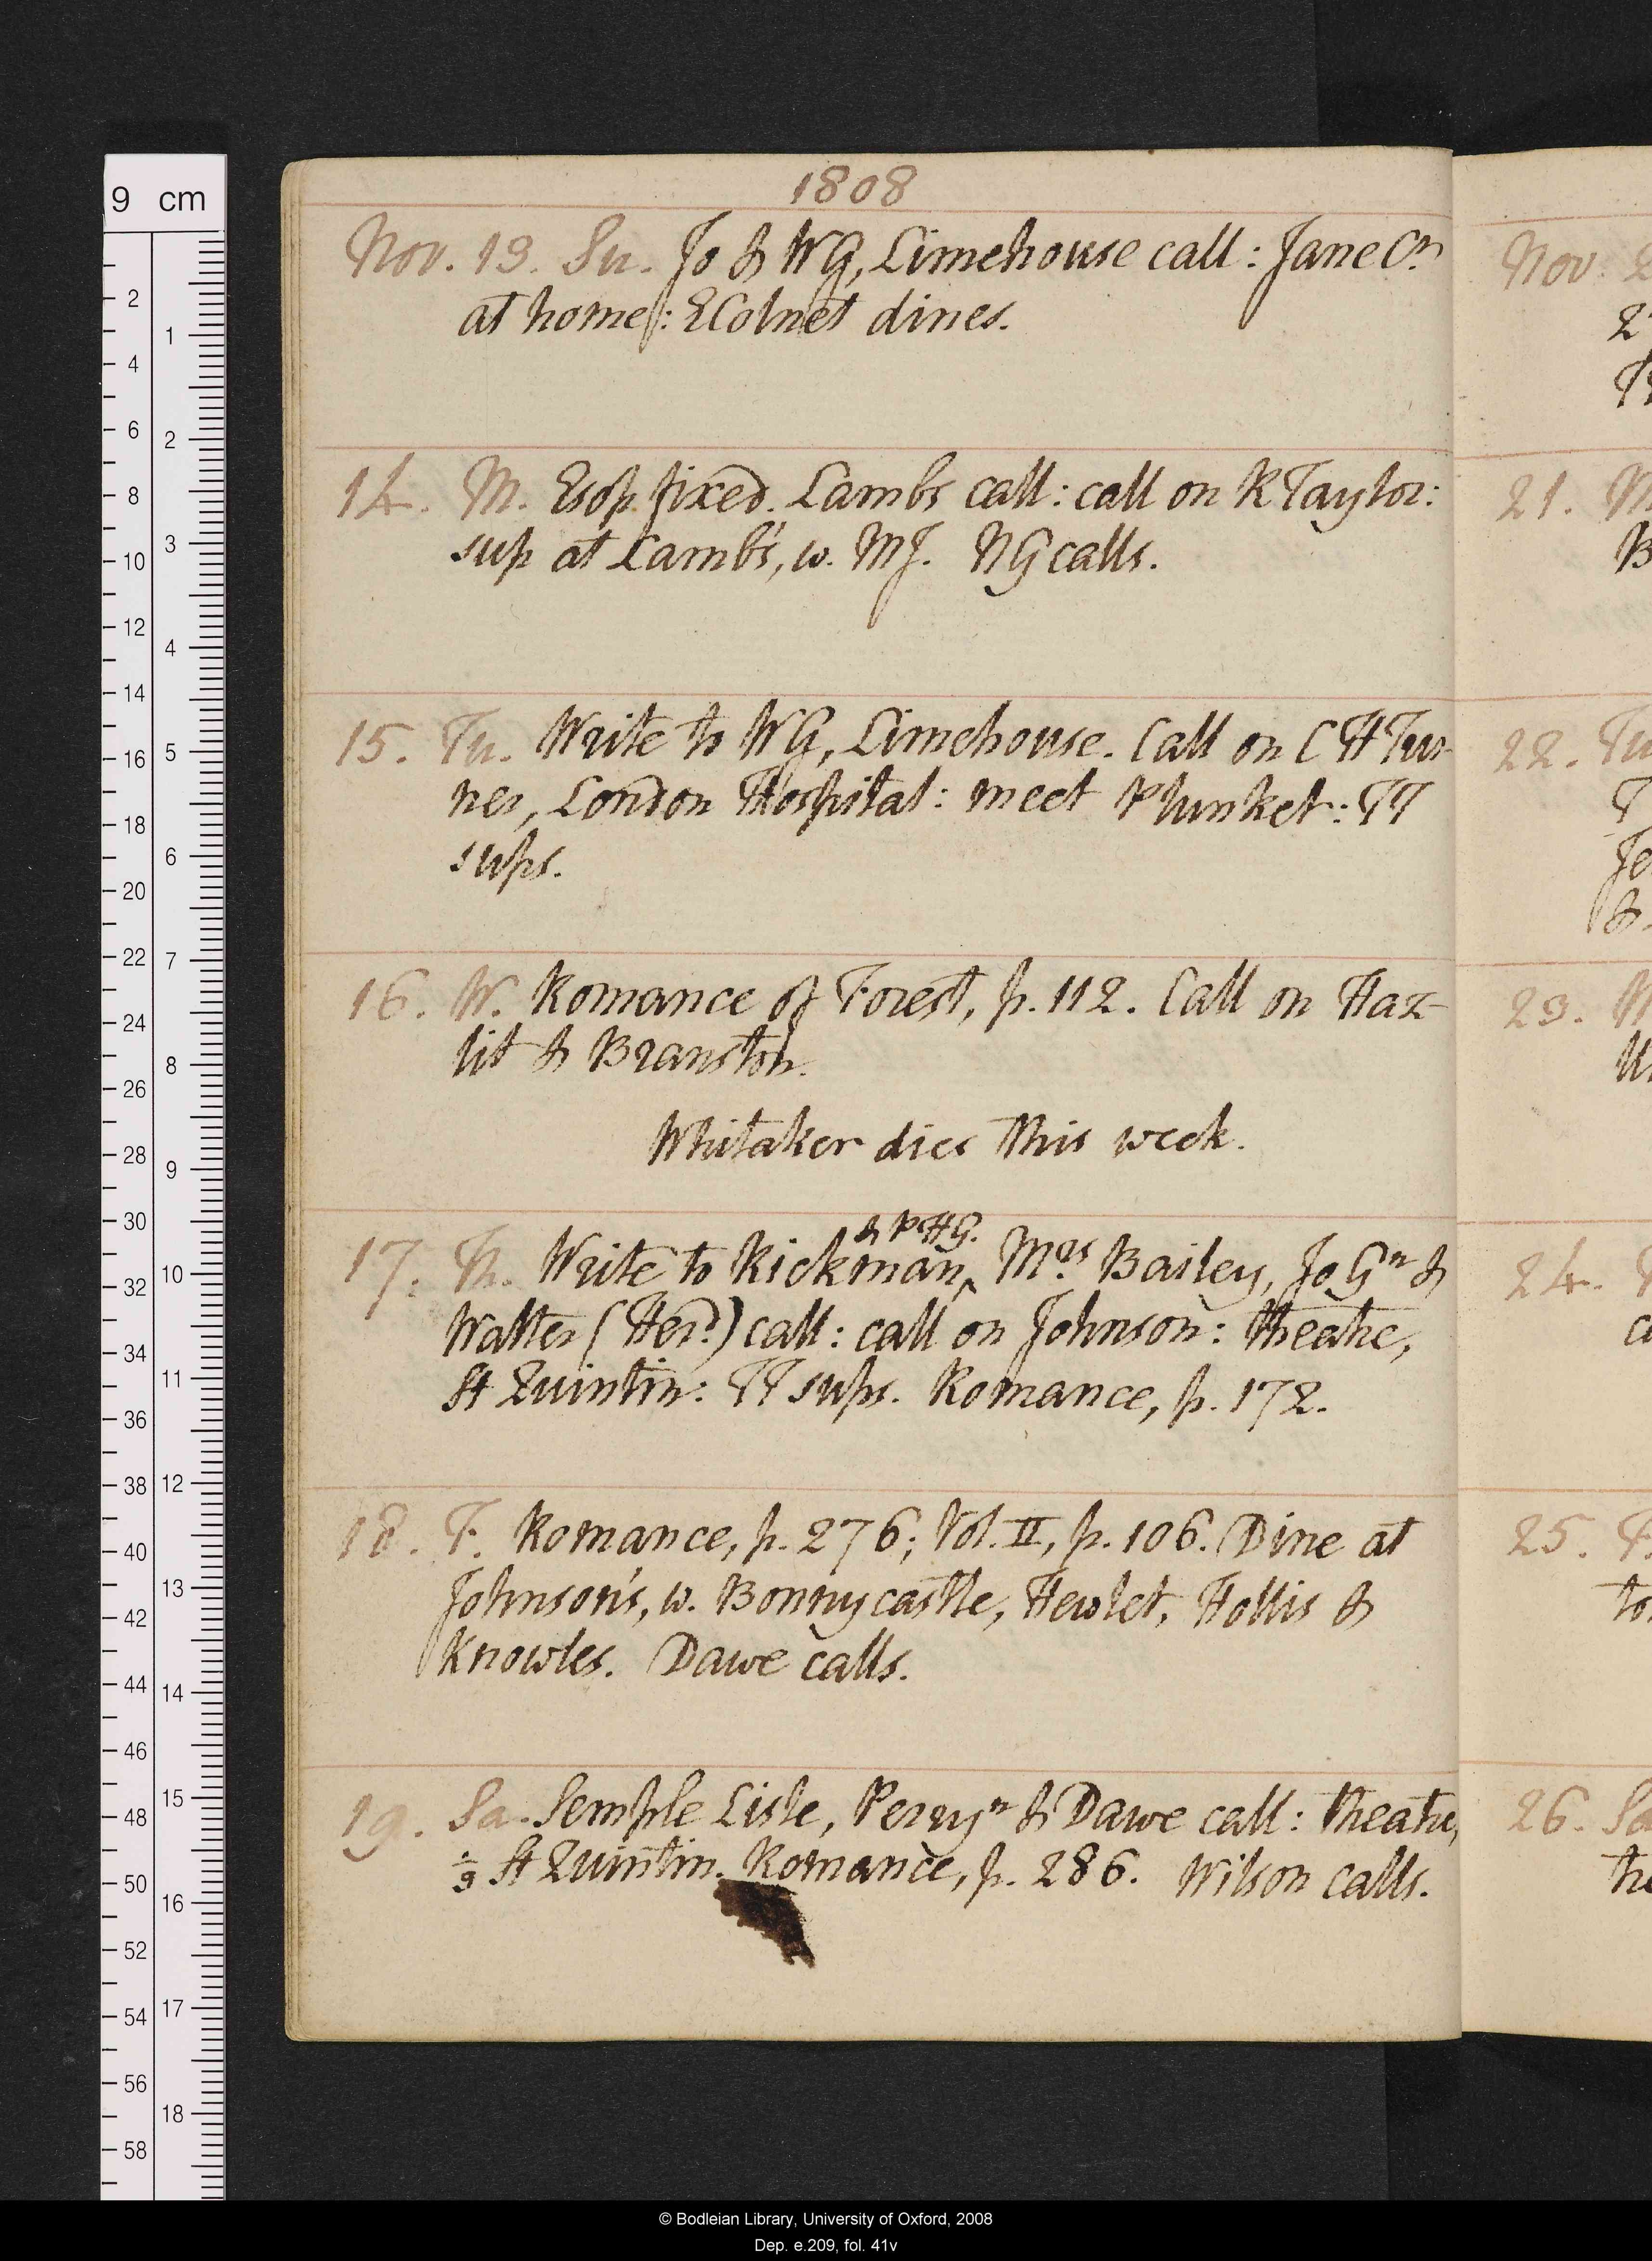 1808
Nov. 13. Su. Jo & WG, Limehouse call: Jane Cn
at home: E Colnet dines.
14. M. Esop fixed. Lambs call: call on R Taylor:
sup at Lamb's, w. MJ. NG calls.
15. Tu. Write to WG, Limehouse. Call on C H Tur-
ner, London Hospital: meet Plunket: TT
sups.
16. W. Romance of Forest, p. 112. Call on Haz-
lit & Branston.
Whitaker dies this week.
& PHG.
17. Th. Write to Rickman^, Mrs Bailey, Jo Gn &
Walter (Herd.) call: call on Johnson: theatre,
St Quintin: TT sups. Romance, p. 172.
18. F. Romance, p. 276; Vol. II, p. 106. Dine at
Johnson's, w. Bonnycastle, Hewlet, Hollis &
Knowles. Dawe calls.
19. Sa. Semple Lisle, Perryn & Dawe call: theatre,
St Quintin. Romance, p. 286. Wilson calls.
Nov.
21.
22. Tu
23.
24.
25. F.
26. Sa
9 cm
2
4
6
8
10
12
14
16
18
20
22
24
26
28
30
32
34
36
38
40
42
44
46
48
50
52
54
56
58
1
2
3
4
5
6
7
8
9
10
11
12
13
14
15
16
17
18
© Bodleian Library, University of Oxford, 2008
Dep. e.209, fol. 41v